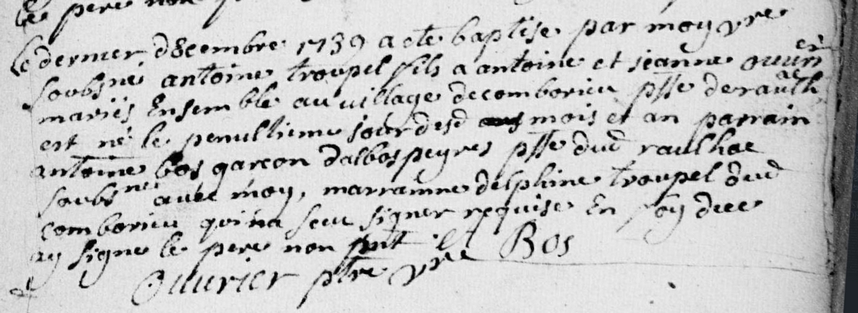 le pere non
Le dernier d8cembre 1739 a ete baptise par moy vre
soubsné antoine troupel fils a antoine et jeanne ouvrier
mariés Ensemble au village decomborieu psse deraulh
est né le penultieme jour desd mois et an parrain
antoine bos garcon dalbospeyres psse dud raulhac
soubsnes avec moy, marrainne delphine troupel dud
comborieu quina sceu signer requise En foy dece
ay signe le pere non pnt Bos
Ouvrier ptre vre